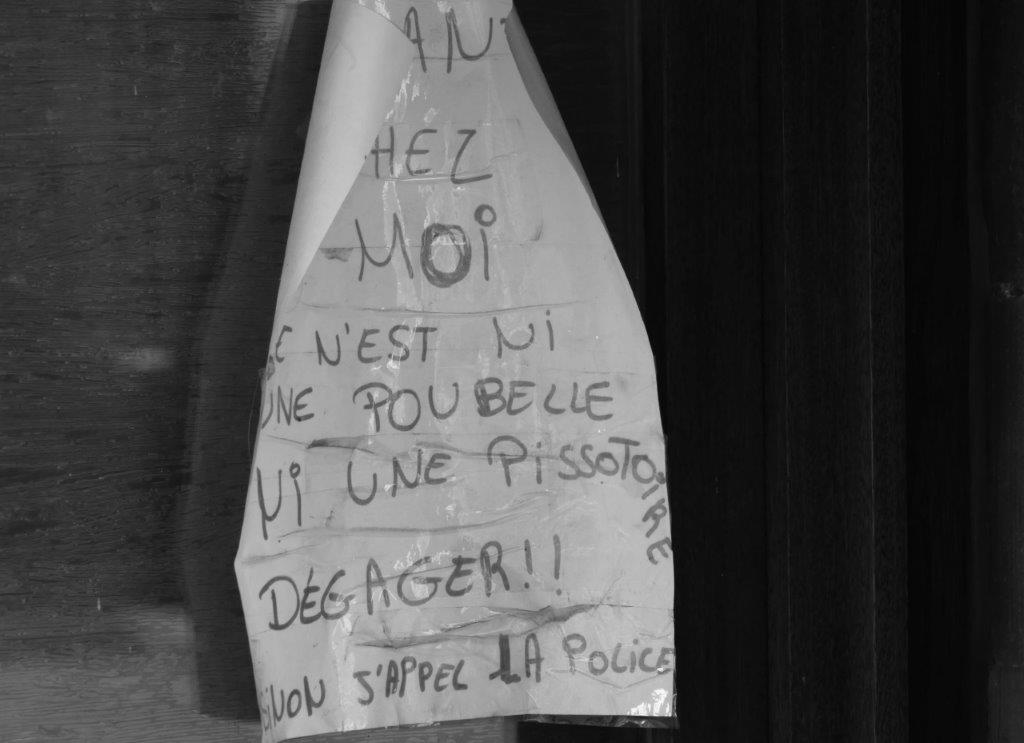 HEZ
MOi
CE N'EST Ni
UNE POUBELLE
Ni UNE PiSSOTOiRE
DÉGAGER!!
SiNON J'APPEL LA POLiCE